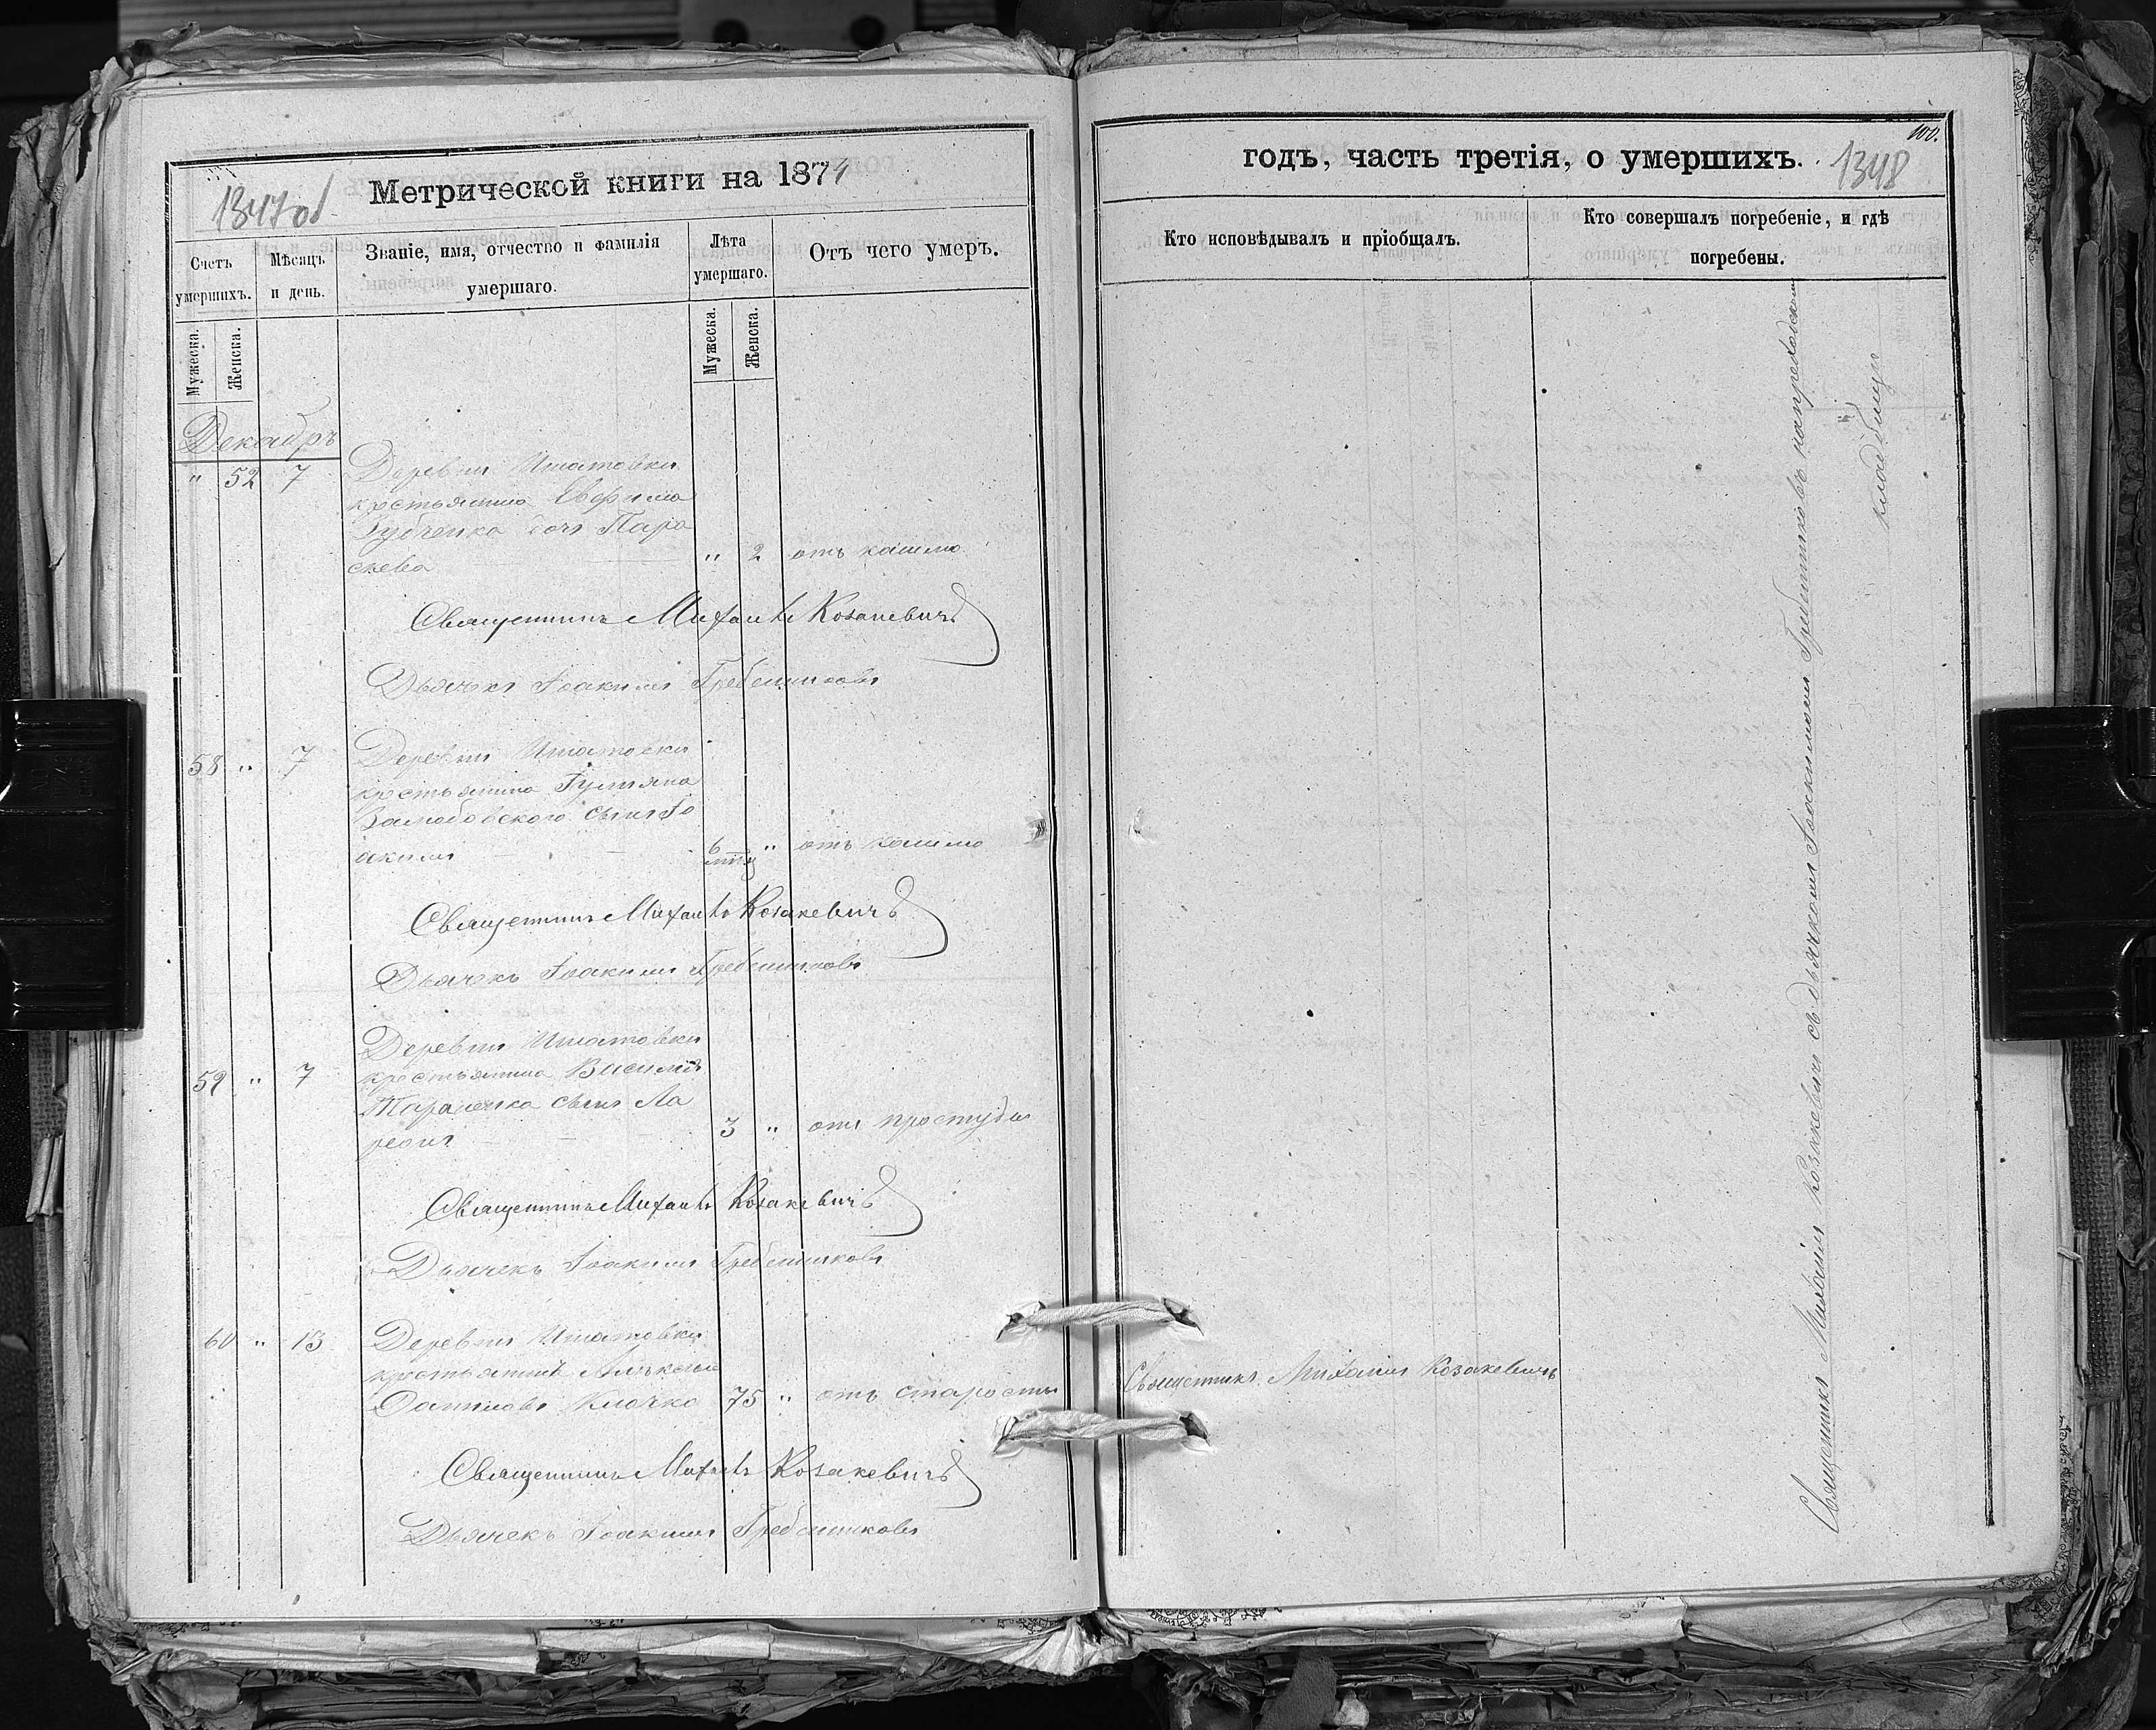 1347об
Метрической книги на 1874
Счетъ умершихъ.
Мѣсяцъ и день.
Званіе, имя, отчество и фамилія умершаго.
Лѣта умершаго.
Отъ чего умеръ.
Мужеска.
Женска.
Мужеска.
Женска.
Декабрь
" 52 7 Деревни
крестьянина Евфима
Зубченка дочь Пара
скева " 2 отъ кашлю
Священникъ Михаилъ Козакевичъ
Дьячекъ Іоакимъ Гребенниковъ
58 " 7 Деревни
крестьянина
сынъ Іо
акимъ 6 " отъ кашлю
Священникъ Михаилъ Козакевичъ
Дьячекъ Іоакимъ Гребенниковъ
59 " 7 Деревни
крестьянина Василія
сынъ Ла
3 " отъ простуды
Священникъ Михаилъ Козакевичъ
Дьячекъ Іоакимъ Гребенниковъ
60 " 13 Деревни
крестьянинъ
Даниловъ Клочко 75 " отъ старости
Священникъ Михаилъ Козакевичъ
Дьячекъ Іоакимъ Гребенниковъ
100.
годъ, часть третія, о умершихъ.
1348
Кто исповѣдывалъ и пріобщалъ.
Кто совершалъ погребеніе, и гдѣ
погребены.
Священникъ Михаилъ Козакевичъ
Священникъ Михаилъ Козакевичъ съ дьячкомъ Іоакимомъ Гребенниковъ на приходском
кладбищи